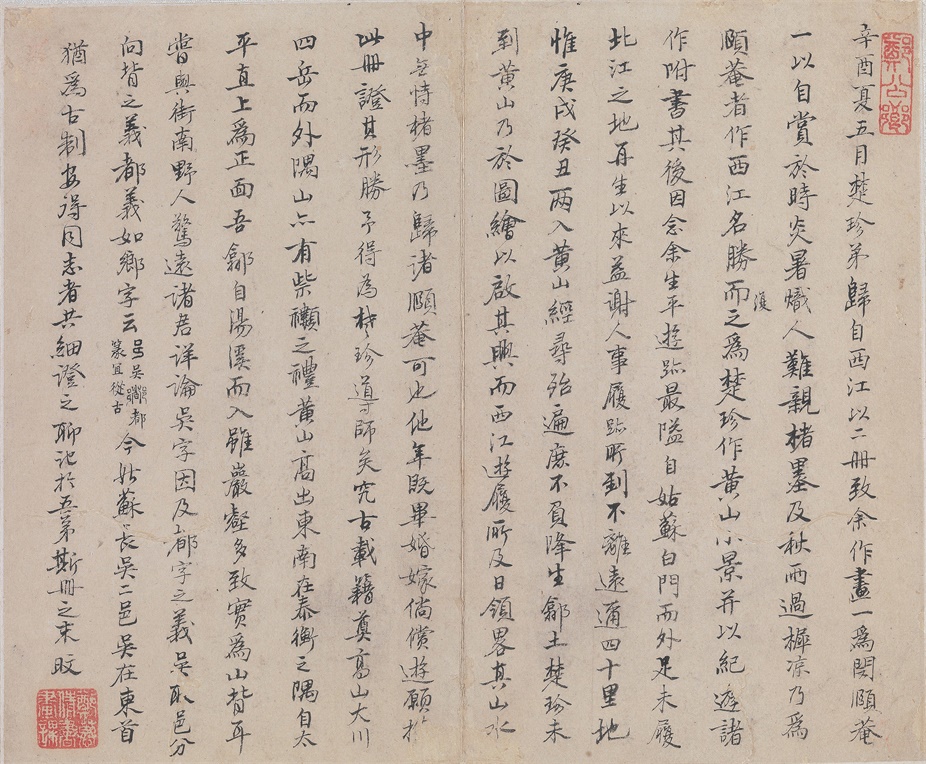 辛酉夏五月楚珍弟歸自西江以二冊致余作畫一為閔頤菴
一以自賞於時炎暑熾人難親楮墨及秋雨過輕凉乃為
頤菴者作西江名勝而復之為楚珍作黃山小景并以紀遊諸
作附書其後因念余生平遊跡最隘自姑蘇白門而外足未履
北江之地再生以來益謝人事履跡所到不離遠邇四十里地
惟庚戌癸丑兩入黃山經尋殆遍庶不負降生鄒土楚珍未
到黃山乃於圖繪以啟其興而西江遊履所及日領畧其山水
中無恃楮墨乃歸諸頤菴可也他年既畢婚嫁倘償遊願於
此冊證其形勝予得為楚珍道導師矣究古載籍奠高山大川
四岳而外隅山亦有柴禷之禮黃山高出東南在泰衡之隅自太
平直上為正面吾歙自湯溪而入雖巖壑多致實為山背耳
嘗與街南野人驁遠諸君詳論吳字因及都字之義吳取邑分
向背之義都義如鄉字云吳都篆宜從古今姑蘇長吳二邑吳在東首
猶為古制安得同志者共細證之聊記於吾弟斯冊之末旼